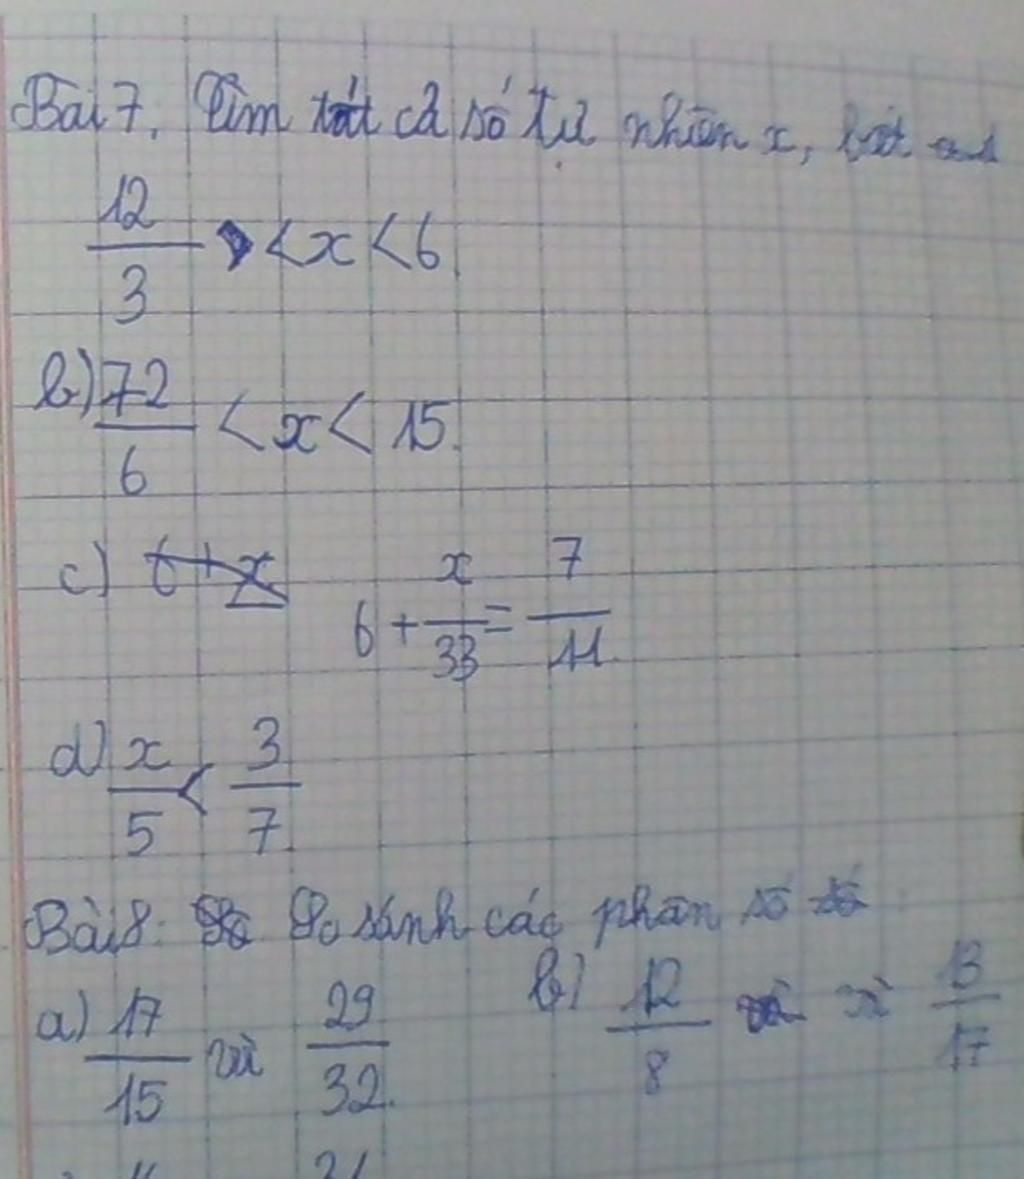 Bài 7. Tìm tất cả số tự nhiên x, biết
12/3 < x < 6
b) 72/6 < x < 15.
c) 6 + x/33 = 7/11
d) x/5 < 3/7
Bài 8: So sánh các phân số
a) 17/15 và 29/32 b) 12/8 và 13/17